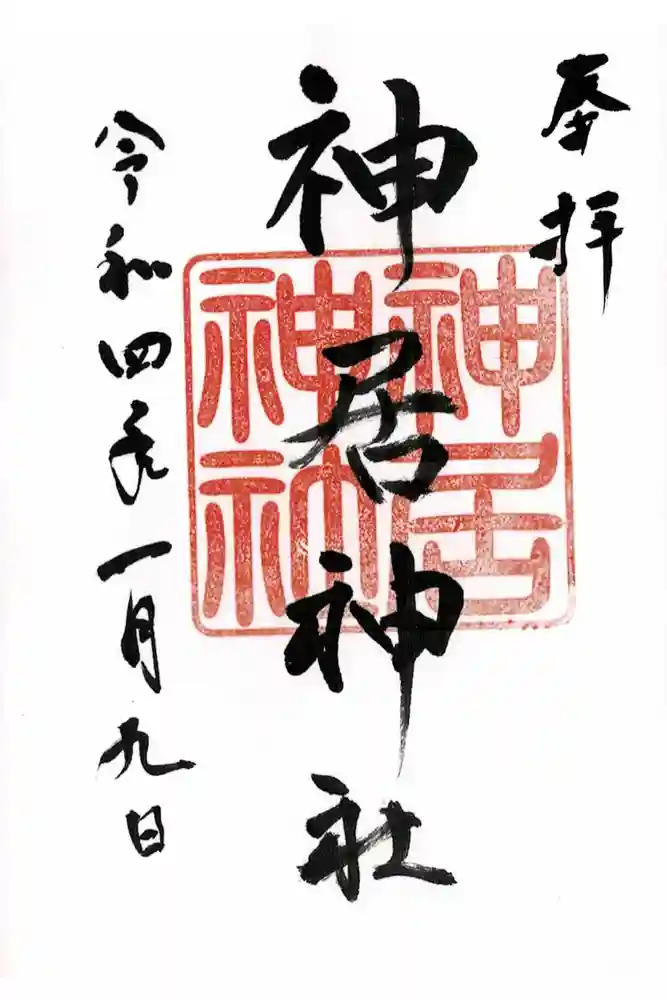 奉拝
神居神社
神居神社
令和四年一月九日